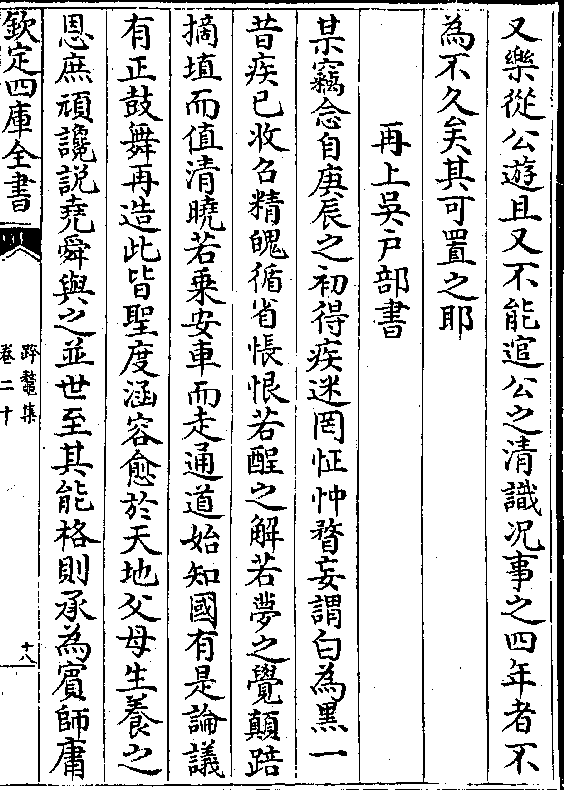 又樂從公遊且又不能逭公之清識况事之四年者不
為不久矣其可置之耶
再上吳户部書
某竊念自庚辰之初得疾迷罔怔忡瞀妄謂白為黒一
昔疾已收召精魄循省悵恨若酲之解若夢之覺顛踣
擿埴而值清曉若乗安車而走通道始知國有是論議
有正鼓舞再造此皆聖度涵容愈於天地父母生養之
恩庶頑讒説堯舜與之並世至其能格則承為賓師庸
欽定四庫全書
跨鼇集
卷二十
十八